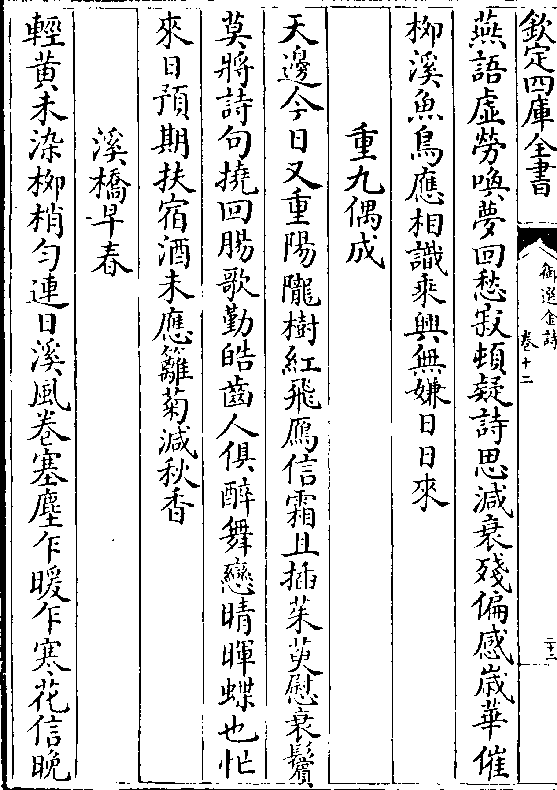 欽定四庫全書
御選金詩
卷十二
二十二
燕語虛勞喚夢回愁寂頓疑詩思減衰殘偏感嵗華催
栁溪魚鳥應相識乘興無嫌日日來
重九偶成
天邊今日又重陽隴樹紅飛鴈信霜且插茱萸慰衰鬢
莫將詩句撓回腸歌勤皓齒人俱醉舞戀晴暉蝶也忙
來日預期扶宿酒未應籬菊減秋香
溪橋早春
輕黄未染栁梢勻連日溪風卷塞塵乍暖乍寒花信晚